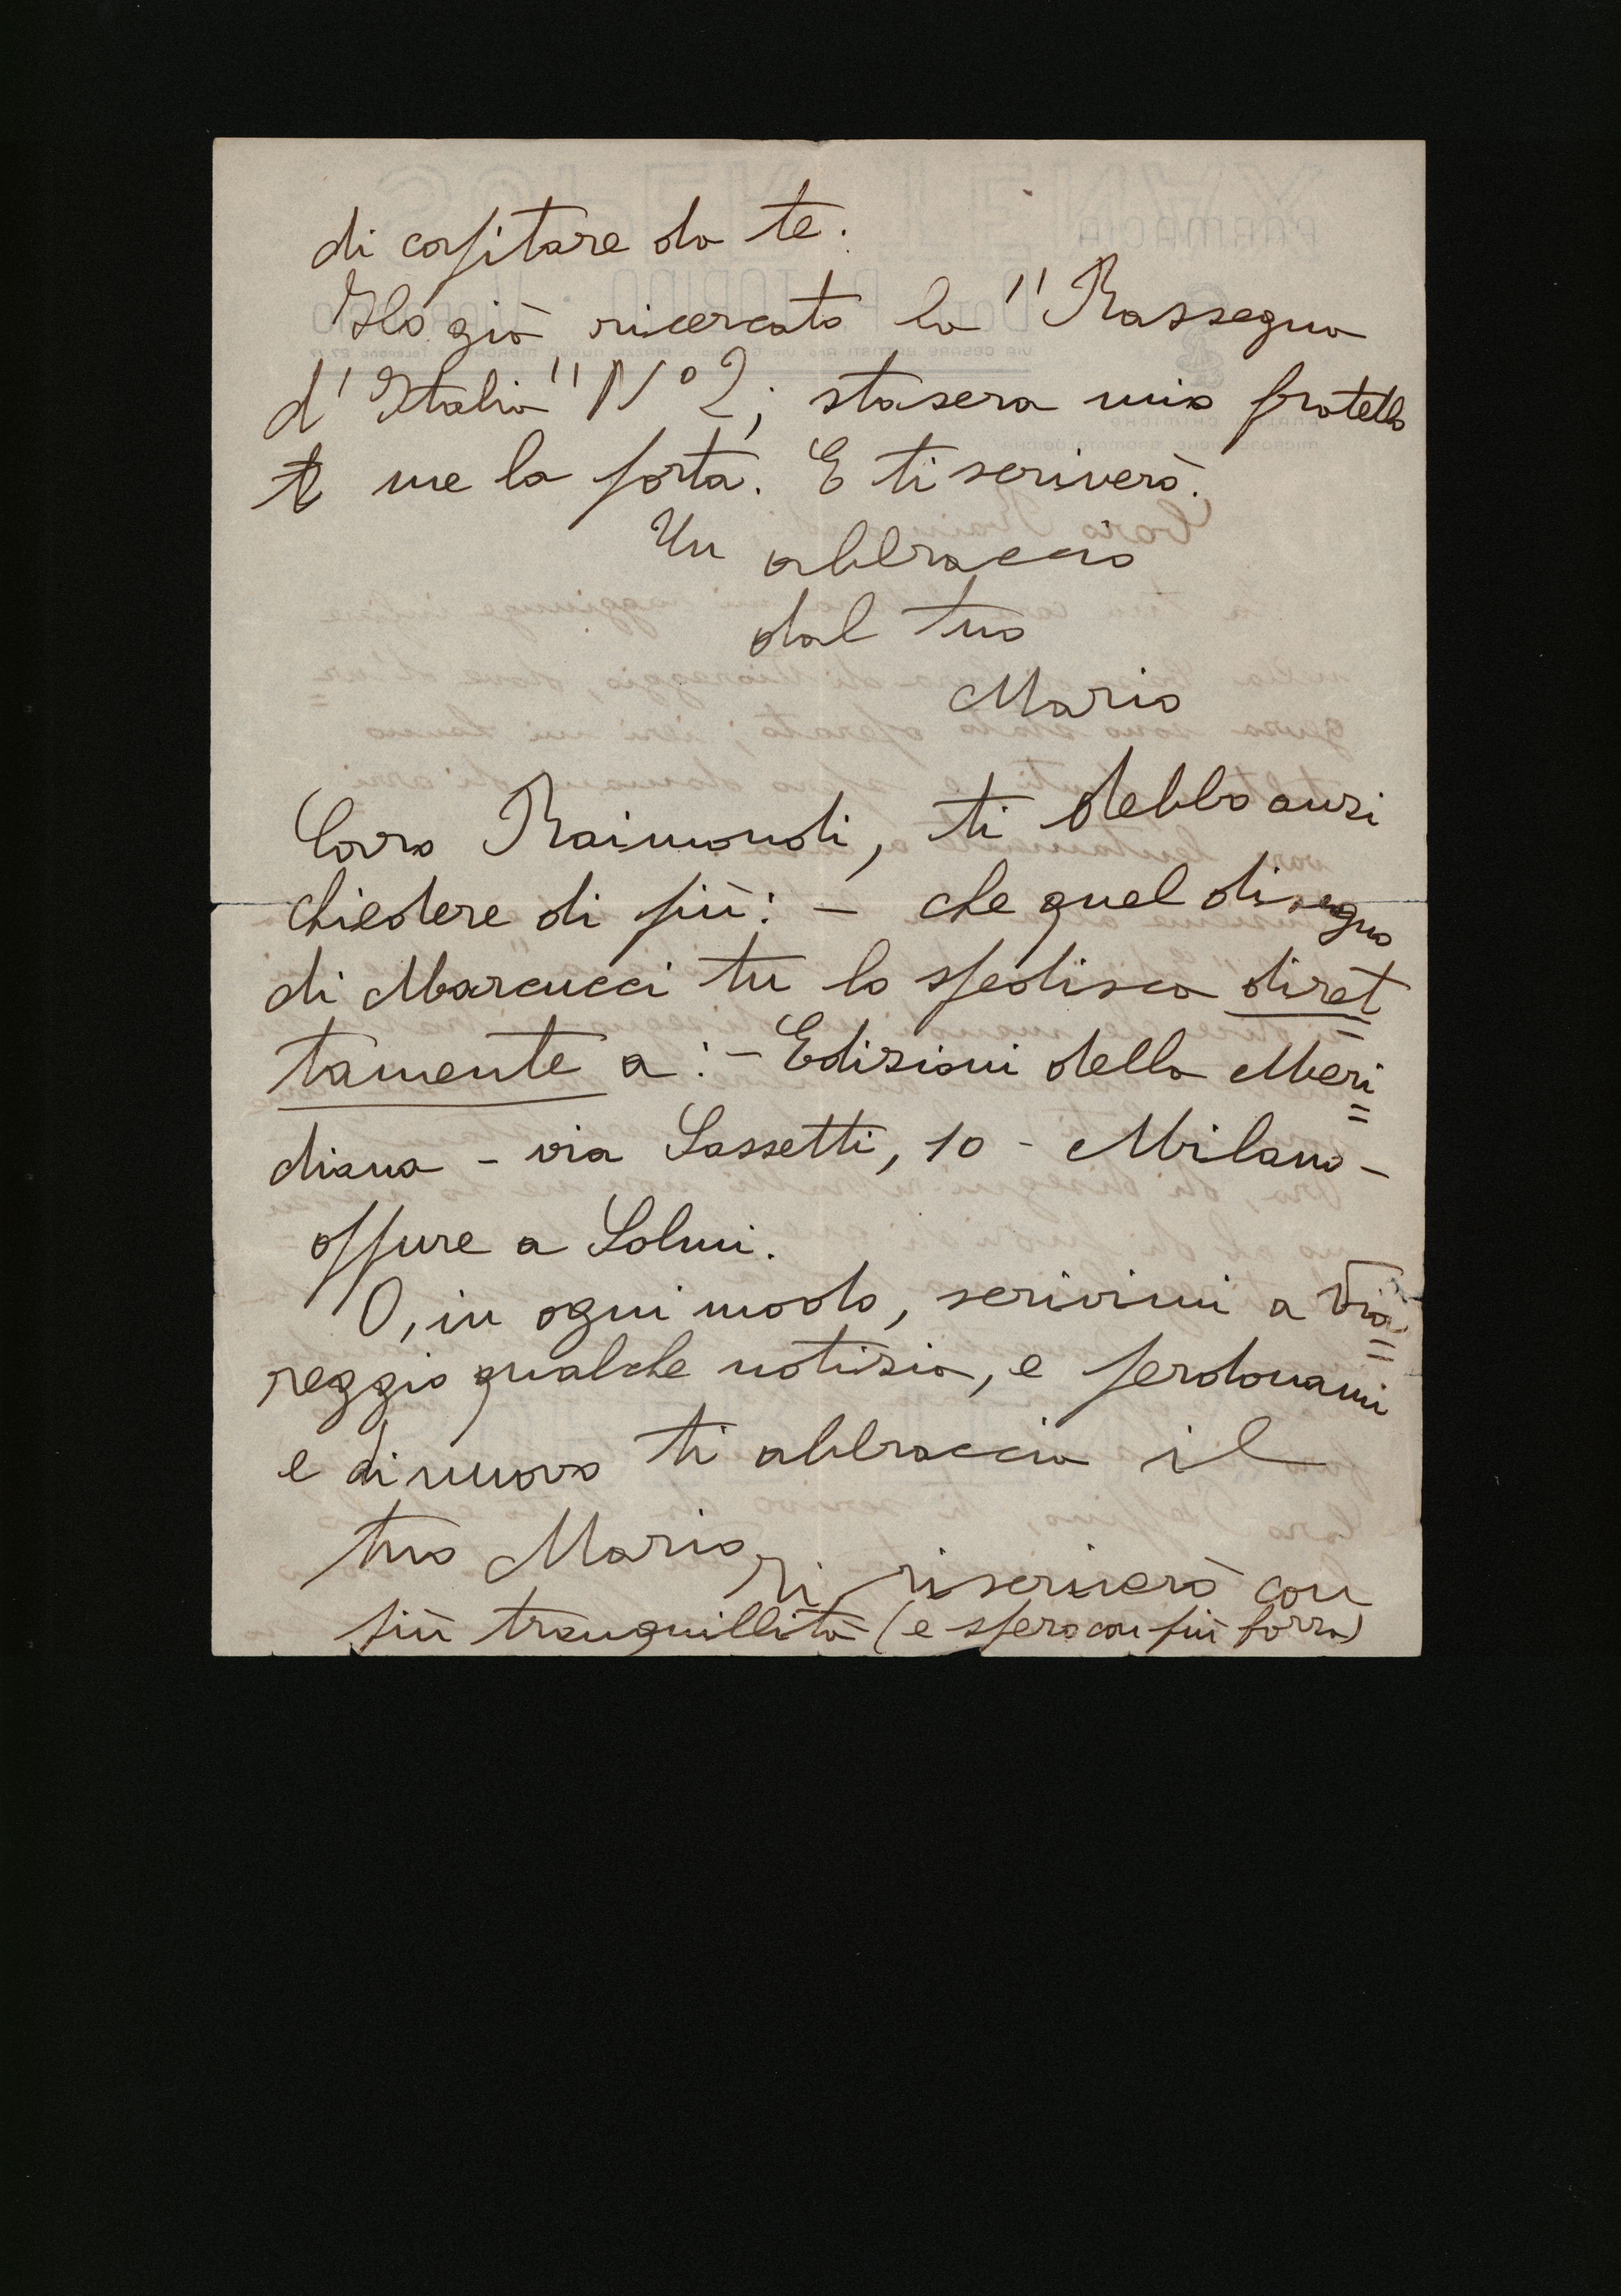 di capitare da te.
Ho già ricercato la "Rassegna
d'Italia" N° 2; stasera mio fratello
me la porta. E ti scriverò.
Un abbraccio
dal tuo
Mario
Caro Raimondi, ti debbo anzi
chiedere di più: - che quel disegno
di Marcucci tu lo spedisca diret
tamente a: - Edizioni della Meri
=
diana - via Sassetti, 10 - Milano -
oppure a Solmi.
O, in ogni modo, scrivimi a Via
=
reggio qualche notizia, e perdonami
e di nuovo ti abbraccia il
tuo Mario
Ti riscriverò con
più tranquillità (e spero con più forza)